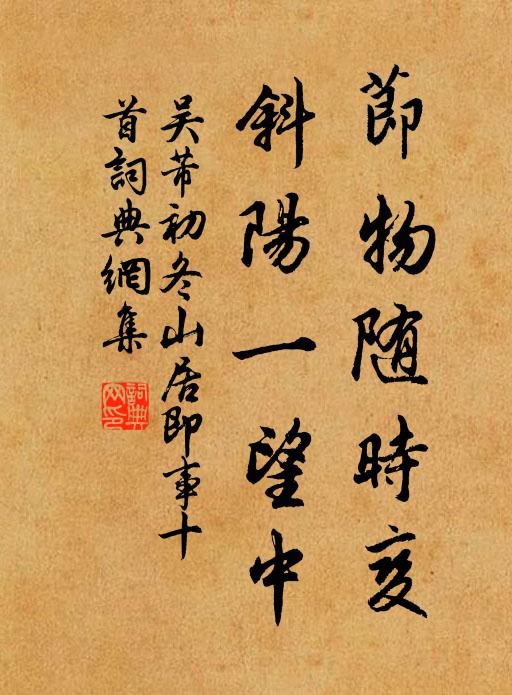 節物随時変
斜陽一望中
吴芾初冬山居即事十
首詞典網集
詞典網印